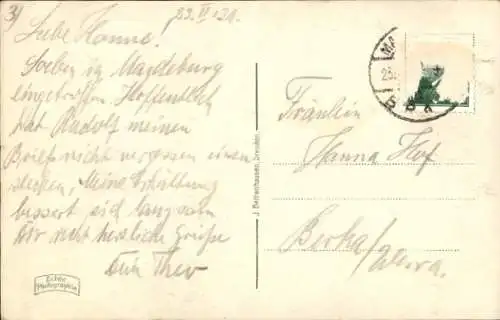 3)
23. VI 21.
Liebe Hanna!
Soeben in Magdeburg
eingetroffen. Hoffentlich
hat Rudolf meinen
Brief nicht vergessen einzu
stecken. Meine Erkältung
bessert sich langsam
Dir recht herzliche Grüße
Dein Theo
Echte
Photographie
J. Bettenhausen, Dresden.
Fräulein
Hanna Hof
Berka/
Werra.